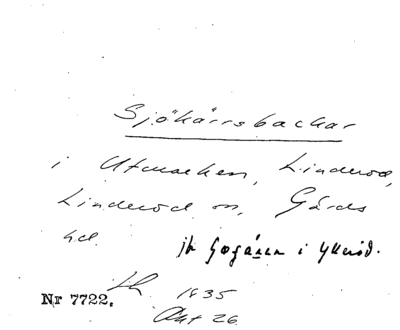 Sjökärrsbackar
i Utmarken, Linderöd,
Linderöd sn, Gärds
hd.
jfr Gogåren i Ytteröd.
Nr 7722. Lh 1835
Akt 26